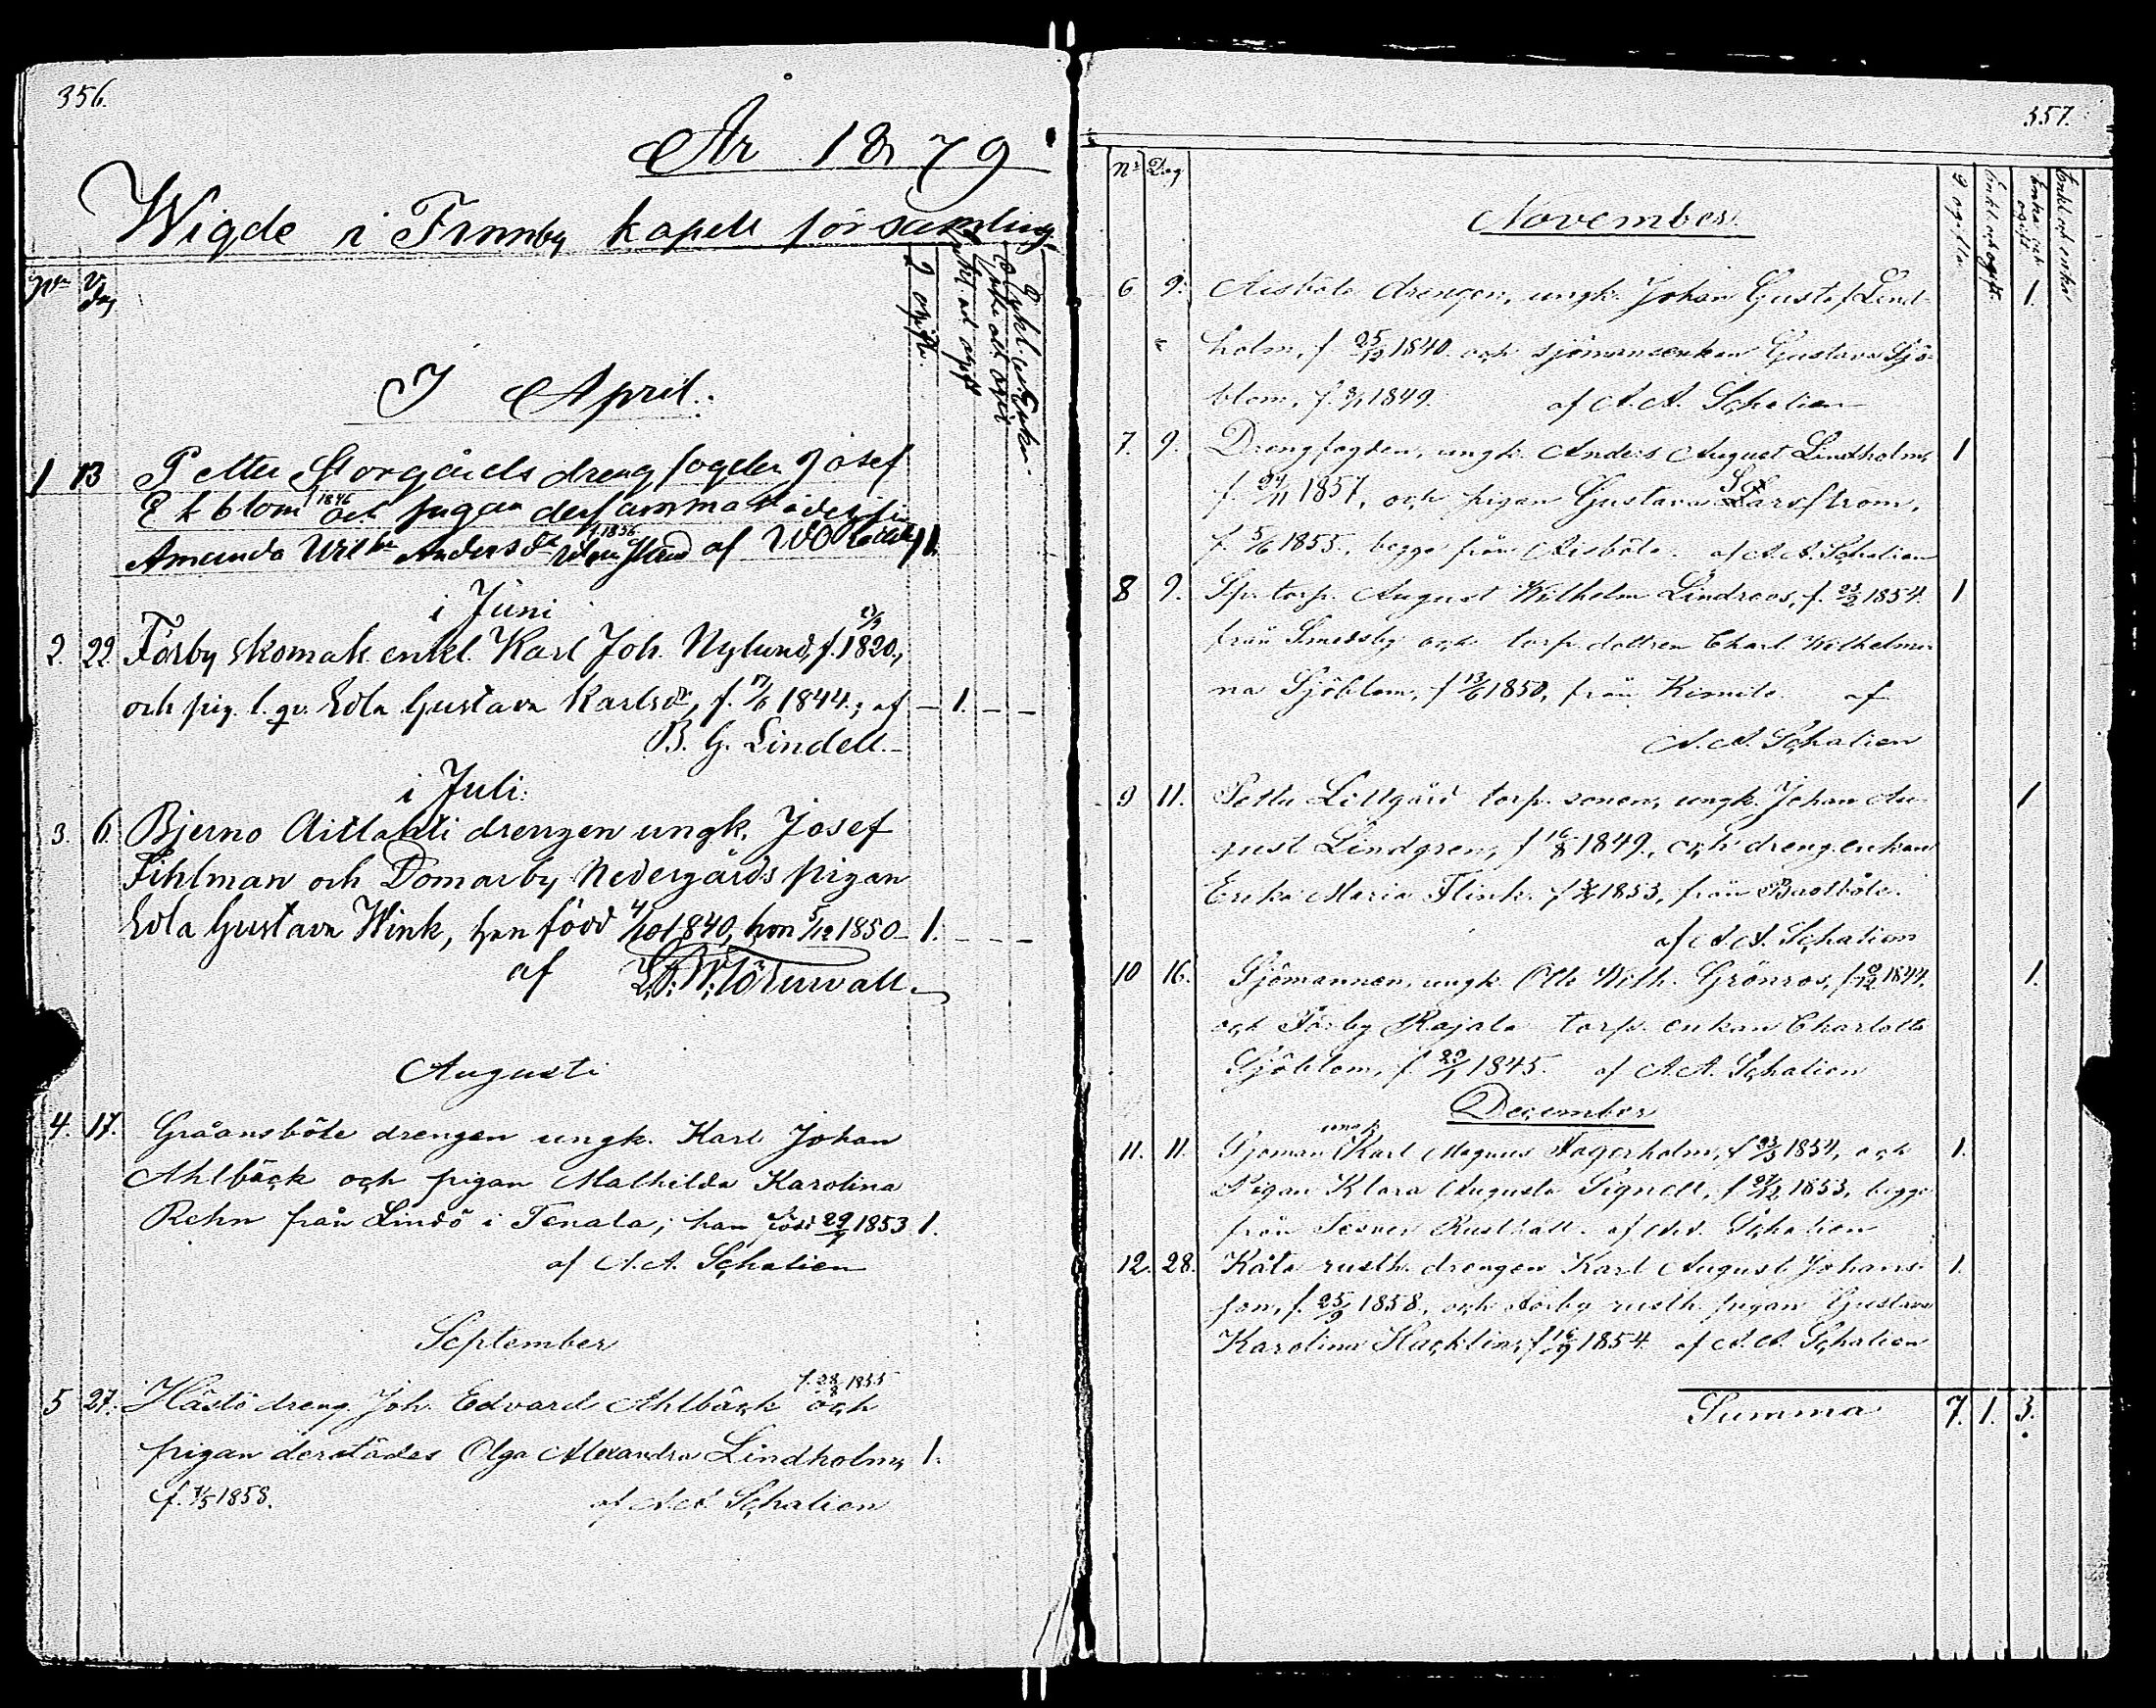 356.
År 1879
Wigde i Finnby kapell församling
N:o dag 2 ogifte. Enkl. och ogift
I April.
1 13 Pettu Storgårds drengfogden Josef
Ekblom 1846 och pigan dersammastädes
Amanda Wilh:a Andersd:r f. 1856 af 1.
i Juni
2. 22. Förby skomak. enkl. Karl Joh. Nylund, f. 1820,
och pig. l. qv. Edla Gustava Karlsdr, f. 1844.; af – 1. – –
B. G. Lindell.
i Juli.
3. 6. Bjerno Aitlahti drengen ungk. Josef
Fihlman och Domarby Nedergårds pigan
Edla Gustava Wink, han född 4/10 1840, hon 5/12 1850 – 1. – – –
af
Augusti
4. 17. Gråansböle drengen ungk. Karl Johan
Ahlbäck och pigan Mathilda Karolina
Rehn från Lindö i Tenala; han född 1853 1.
af A. A. Schalien
September
f. 28/8 1855
5 27. Hästö dreng. Joh. Edvard Ahlbäck och
pigan derstädes Olga Alexandra Lindholm, 1.
f. 1858. af A. A. Schalien
357.
N:o Dag 2 ogifta. Enkl. och ogift. Enka och ogift. Enkl. och enka
November.
6 9. Aisböle drengen, ungk. Johan Gustaf Lind- 1.
holm, f. 1840. och sjömansenkan Gustava Sjö-
blom, f. 1849. af A. A. Schalien
7. 9. Drengfogden, ungk. Anders August Lindholm, 1
f. 24/11 1857, och pigan Gustava
f. 5/6 1855., begge från Aisböle. af A. A. Schalien
8 9. Sp. torp. August Wilhelm Lindroos, f. 1854. 1
från Smedsby och torp. dottren Charl. Wilhelmi-
na Sjöblom, f. 13/6 1850, från Kimito. af
A. A. Schalien
9 11. Pettu Lillgård torp. sonen, ungk. Johan Au- 1
gust Lindgren, f. 16/8 1849., och drengenkan
Erika Maria Flink. f. 1853, från
af A. A. Schalien
10 16. Sjömannen, ungk. Otto Wilh. Grönros, f. 1844. 1.
och Förby Rajala torp. enkan Charlotta
Sjöblom, f. 29/1 1845. af A. A. Schalien
December
ungk.
11. 11. Sjöman Karl Magnus Fagerholm, f. 1854, och 1.
Pigan Klara Augusta Signell, f. 1853, begge
från Rusthåll. af A. A. Schalien
12. 28. Kåla rusth. drengen Karl August Johans- 1.
son, f. 25/9 1858., och Förby rusth. pigan Gustava
Karolina Hacklin, f. 16/9 1854. af A. A. Schalien
Summa 7. 1. 3.